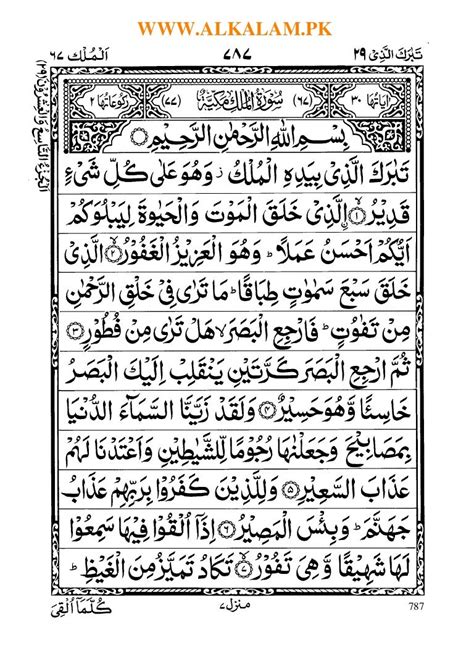 WWW.ALKALAM.PK
تَبٰرَكَ الَّذِیْ ۲۹
۷۸۷
اَلْمُلْك ۶۷
اٰیَاتُهَا ۳۰
(۶۷) سُوْرَةُ الْمُلْكِ مَكِّیَّةٌ (۷۷)
رُكُوْعَاتُهَا ۲
بِسْمِ اللّٰهِ الرَّحْمٰنِ الرَّحِیْمِ
تَبٰرَكَ الَّذِیْ بِیَدِهِ الْمُلْكُ ز وَهُوَ عَلٰی كُلِّ شَیْءٍ
قَدِیْرُۨ ۝۱ الَّذِیْ خَلَقَ الْمَوْتَ وَالْحَیٰوةَ لِیَبْلُوَكُمْ
اَیُّكُمْ اَحْسَنُ عَمَلًا ؕ وَهُوَ الْعَزِیْزُ الْغَفُوْرُ ۝۲ الَّذِیْ
خَلَقَ سَبْعَ سَمٰوٰتٍ طِبَاقًا ؕ مَا تَرٰی فِیْ خَلْقِ الرَّحْمٰنِ
مِنْ تَفٰوُتٍ ؕ فَارْجِعِ الْبَصَرَ ۙ هَلْ تَرٰی مِنْ فُطُوْرٍ ۝۳
ثُمَّ ارْجِعِ الْبَصَرَ كَرَّتَیْنِ یَنْقَلِبْ اِلَیْكَ الْبَصَرُ
خَاسِئًا وَّهُوَ حَسِیْرٌ ۝۴ وَلَقَدْ زَیَّنَّا السَّمَآءَ الدُّنْیَا
بِمَصَابِیْحَ وَجَعَلْنٰهَا رُجُوْمًا لِّلشَّیٰطِیْنِ وَاَعْتَدْنَا لَهُمْ
عَذَابَ السَّعِیْرِ ۝۵ وَلِلَّذِیْنَ كَفَرُوْا بِرَبِّهِمْ عَذَابُ
جَهَنَّمَ ؕ وَبِئْسَ الْمَصِیْرُ ۝۶ اِذَاۤ اُلْقُوْا فِیْهَا سَمِعُوْا
لَهَا شَهِیْقًا وَّهِیَ تَفُوْرُ ۝۷ تَكَادُ تَمَیَّزُ مِنَ الْغَیْظِ ؕ
787
منزل ۷
كُلَّمَاۤ اُلْقِیَ